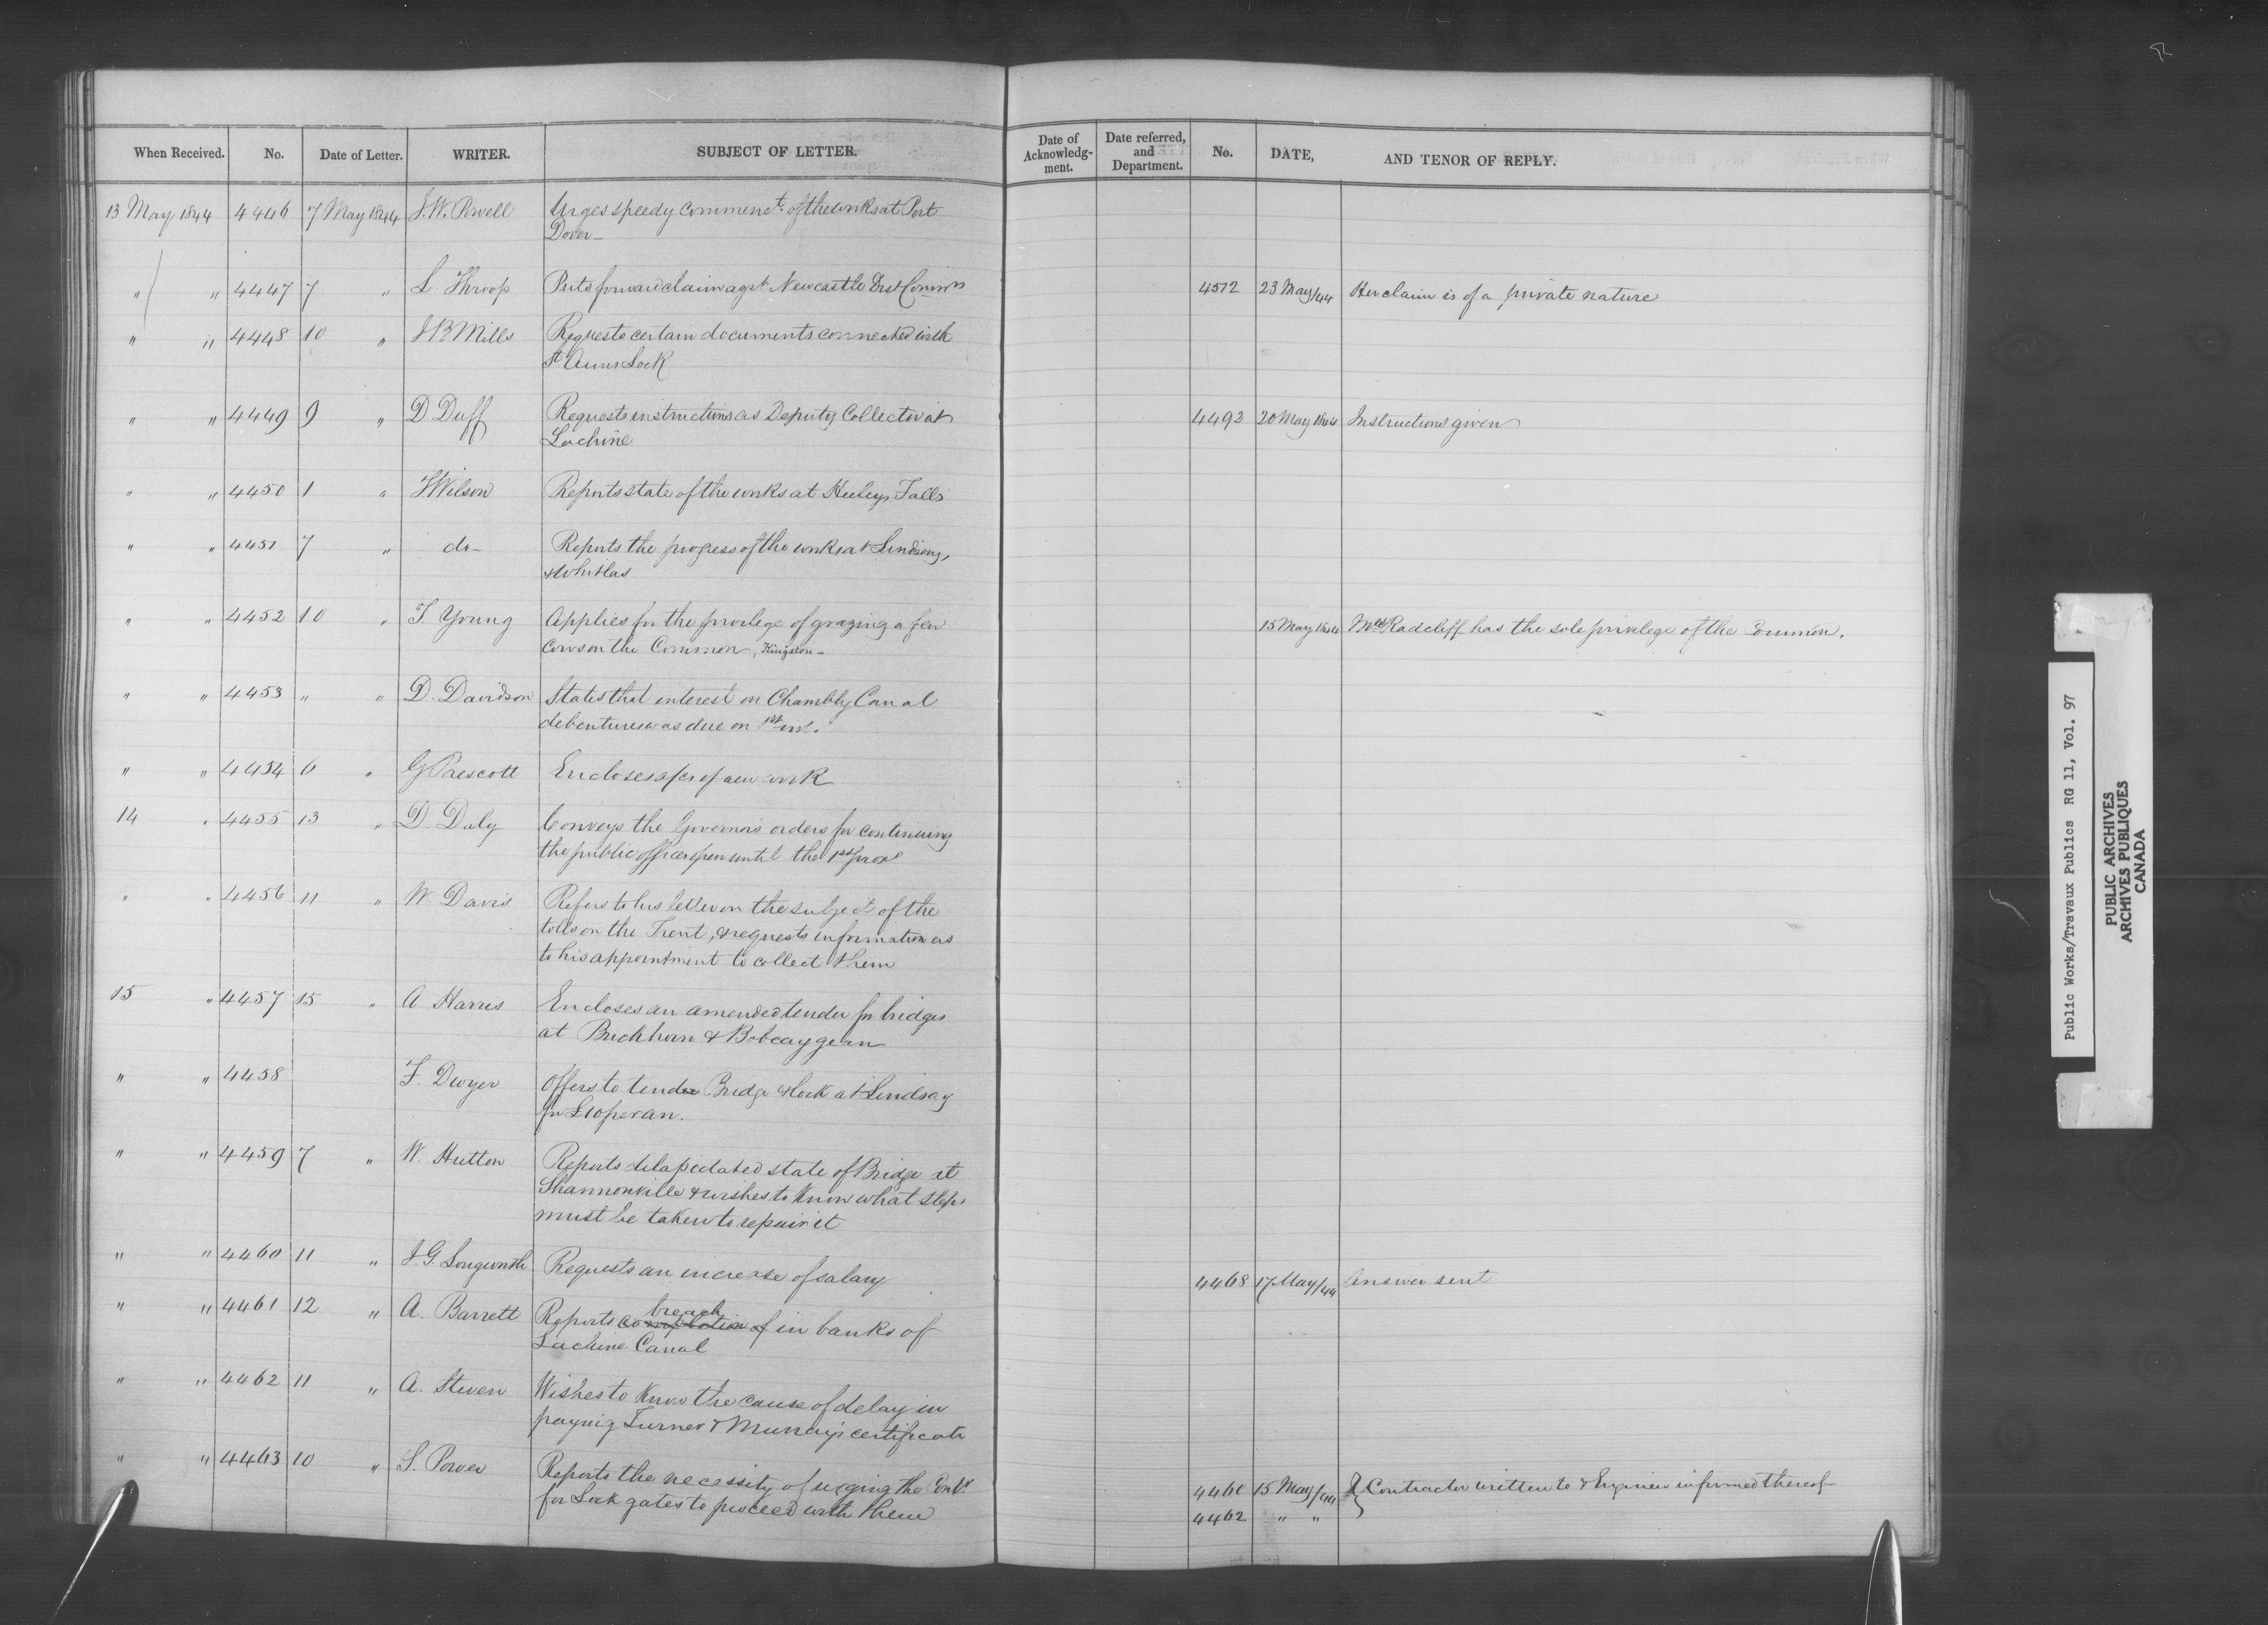 When Received. No. Date of Letter. WRITER. SUBJECT OF LETTER.
Date of Acknowledg-ment. Date referred, and Department. No. DATE, AND TENOR OF REPLY.
13 May 1844 4446 7 May 1844 J.W. Powell Urges speedy commenct. of the works at Port
Dover-
" " 4447 7 " L Throop Puts forward claim agst Newcastle Dist Commrs 4512 23 May/44 Her claim is of a private nature
" " 4448 10 " J B Mills Requests certain documents connected with
St Anns Lock
" " 4449 9 " D Duff Requests instructions as Deputy Collector at 4493 20 May 1844 Instructions given
Lachine
" " 4450 1 " J Wilson Reports state of the works at Heeleys Falls
" " 4451 7 " do- Reports the progress of the works at Lindsay,
& Whitlas
" " 4452 10 " T. Young Applies for the privilege of grazing a few 15 May 1844 Radcliff has the sole privilege of the Common.
cows on the Common, Kingston-
" " 4453 " " D. Davidson States that interest on Chambly Canal
debentures was due on 1st inst.
" " 4454 6 " G Prescott Encloses of new work
14 " 4455 13 " D. Daly Conveys the Governors orders for continuing
the public offices open until the 1st prox
" " 4456 11 " W. Davis Refers to his letter on the subject of the
tolls on the Trent, & requests information as
to his appointment to collect them
15 " 4457 15 " A Harris Encloses an amended tender for bridges
at Buckhorn & Bobcaygean
" " 4458 F. Dwyer Offers to tender Bridge & lock at Lindsay
for
" " 4459 7 " W. Hutton Reports delapidated state of Bridge at
Shannonville & wishes to know what steps
must be taken to repair it
" " 4460 11 " J.G. Longworth Requests an increase of salary 4468 17 May/44 Answer sent
" " 4461 12 " A. Barrett Reports completion of breach in banks of
Lachine Canal
" " 4462 11 " A. Steven Wishes to know the cause of delay in
paying Turner & Murray's certificate
" " 4463 10 " S. Power Reports the necessity of urging the Contr. 4461 15 May/44 Contractor written to & Engineer informed thereof
for Lock gates to proceed with them 4462 " "
Public Works/Travaux Publics RG 11, Vol. 97
PUBLIC ARCHIVES
ARCHIVES PUBLIQUES
CANADA